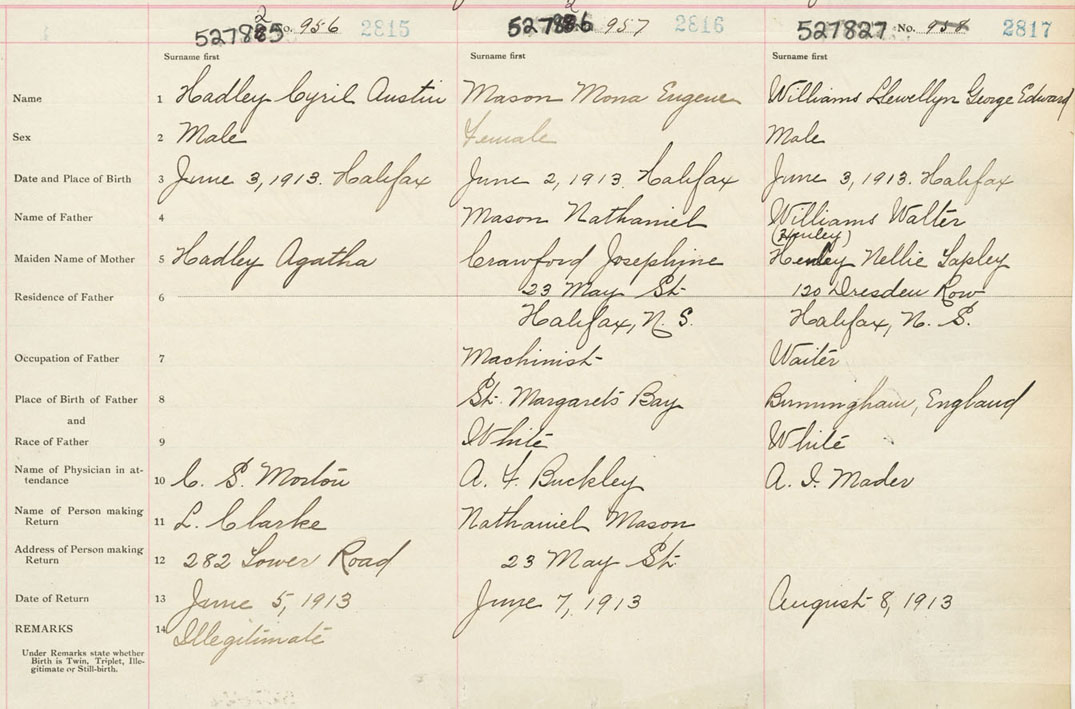 No. 956 2815
No. 957 2816
527827 No. 958 2817
Surname first Surname first Surname first
Name 1 Hadley Cyril Austin Mason Mona Eugene Williams Llewellyn George Edward
Sex 2 Male Female Male
Date and Place of Birth 3 June 3, 1913. Halifax June 2, 1913. Halifax June 3, 1913. Halifax
Name of Father 4 Mason Nathaniel Williams Walter
(Henley)
Maiden Name of Mother 5 Hadley Agatha Crawford Josephine Henley Nellie Tapley
Residence of Father 6 23 May St. 120 Dresden Row
Halifax, N. S. Halifax, N. S.
Occupation of Father 7 Machinist Waiter
Place of Birth of Father 8 St. Margarets Bay Birmingham, England
and
Race of Father 9 White White
Name of Physician in at-
tendance 10 C. S. Morton A. F. Buckley A. I. Mader
Name of Person making
Return 11 L. Clarke Nathaniel Mason
Address of Person making
Return 12 282 Lower Road 23 May St.
Date of Return 13 June 5, 1913 June 7, 1913 August 8, 1913
REMARKS 14 Illegitimate
Under Remarks state whether
Birth is Twin, Triplet, Ille-
gitimate or Still-birth.